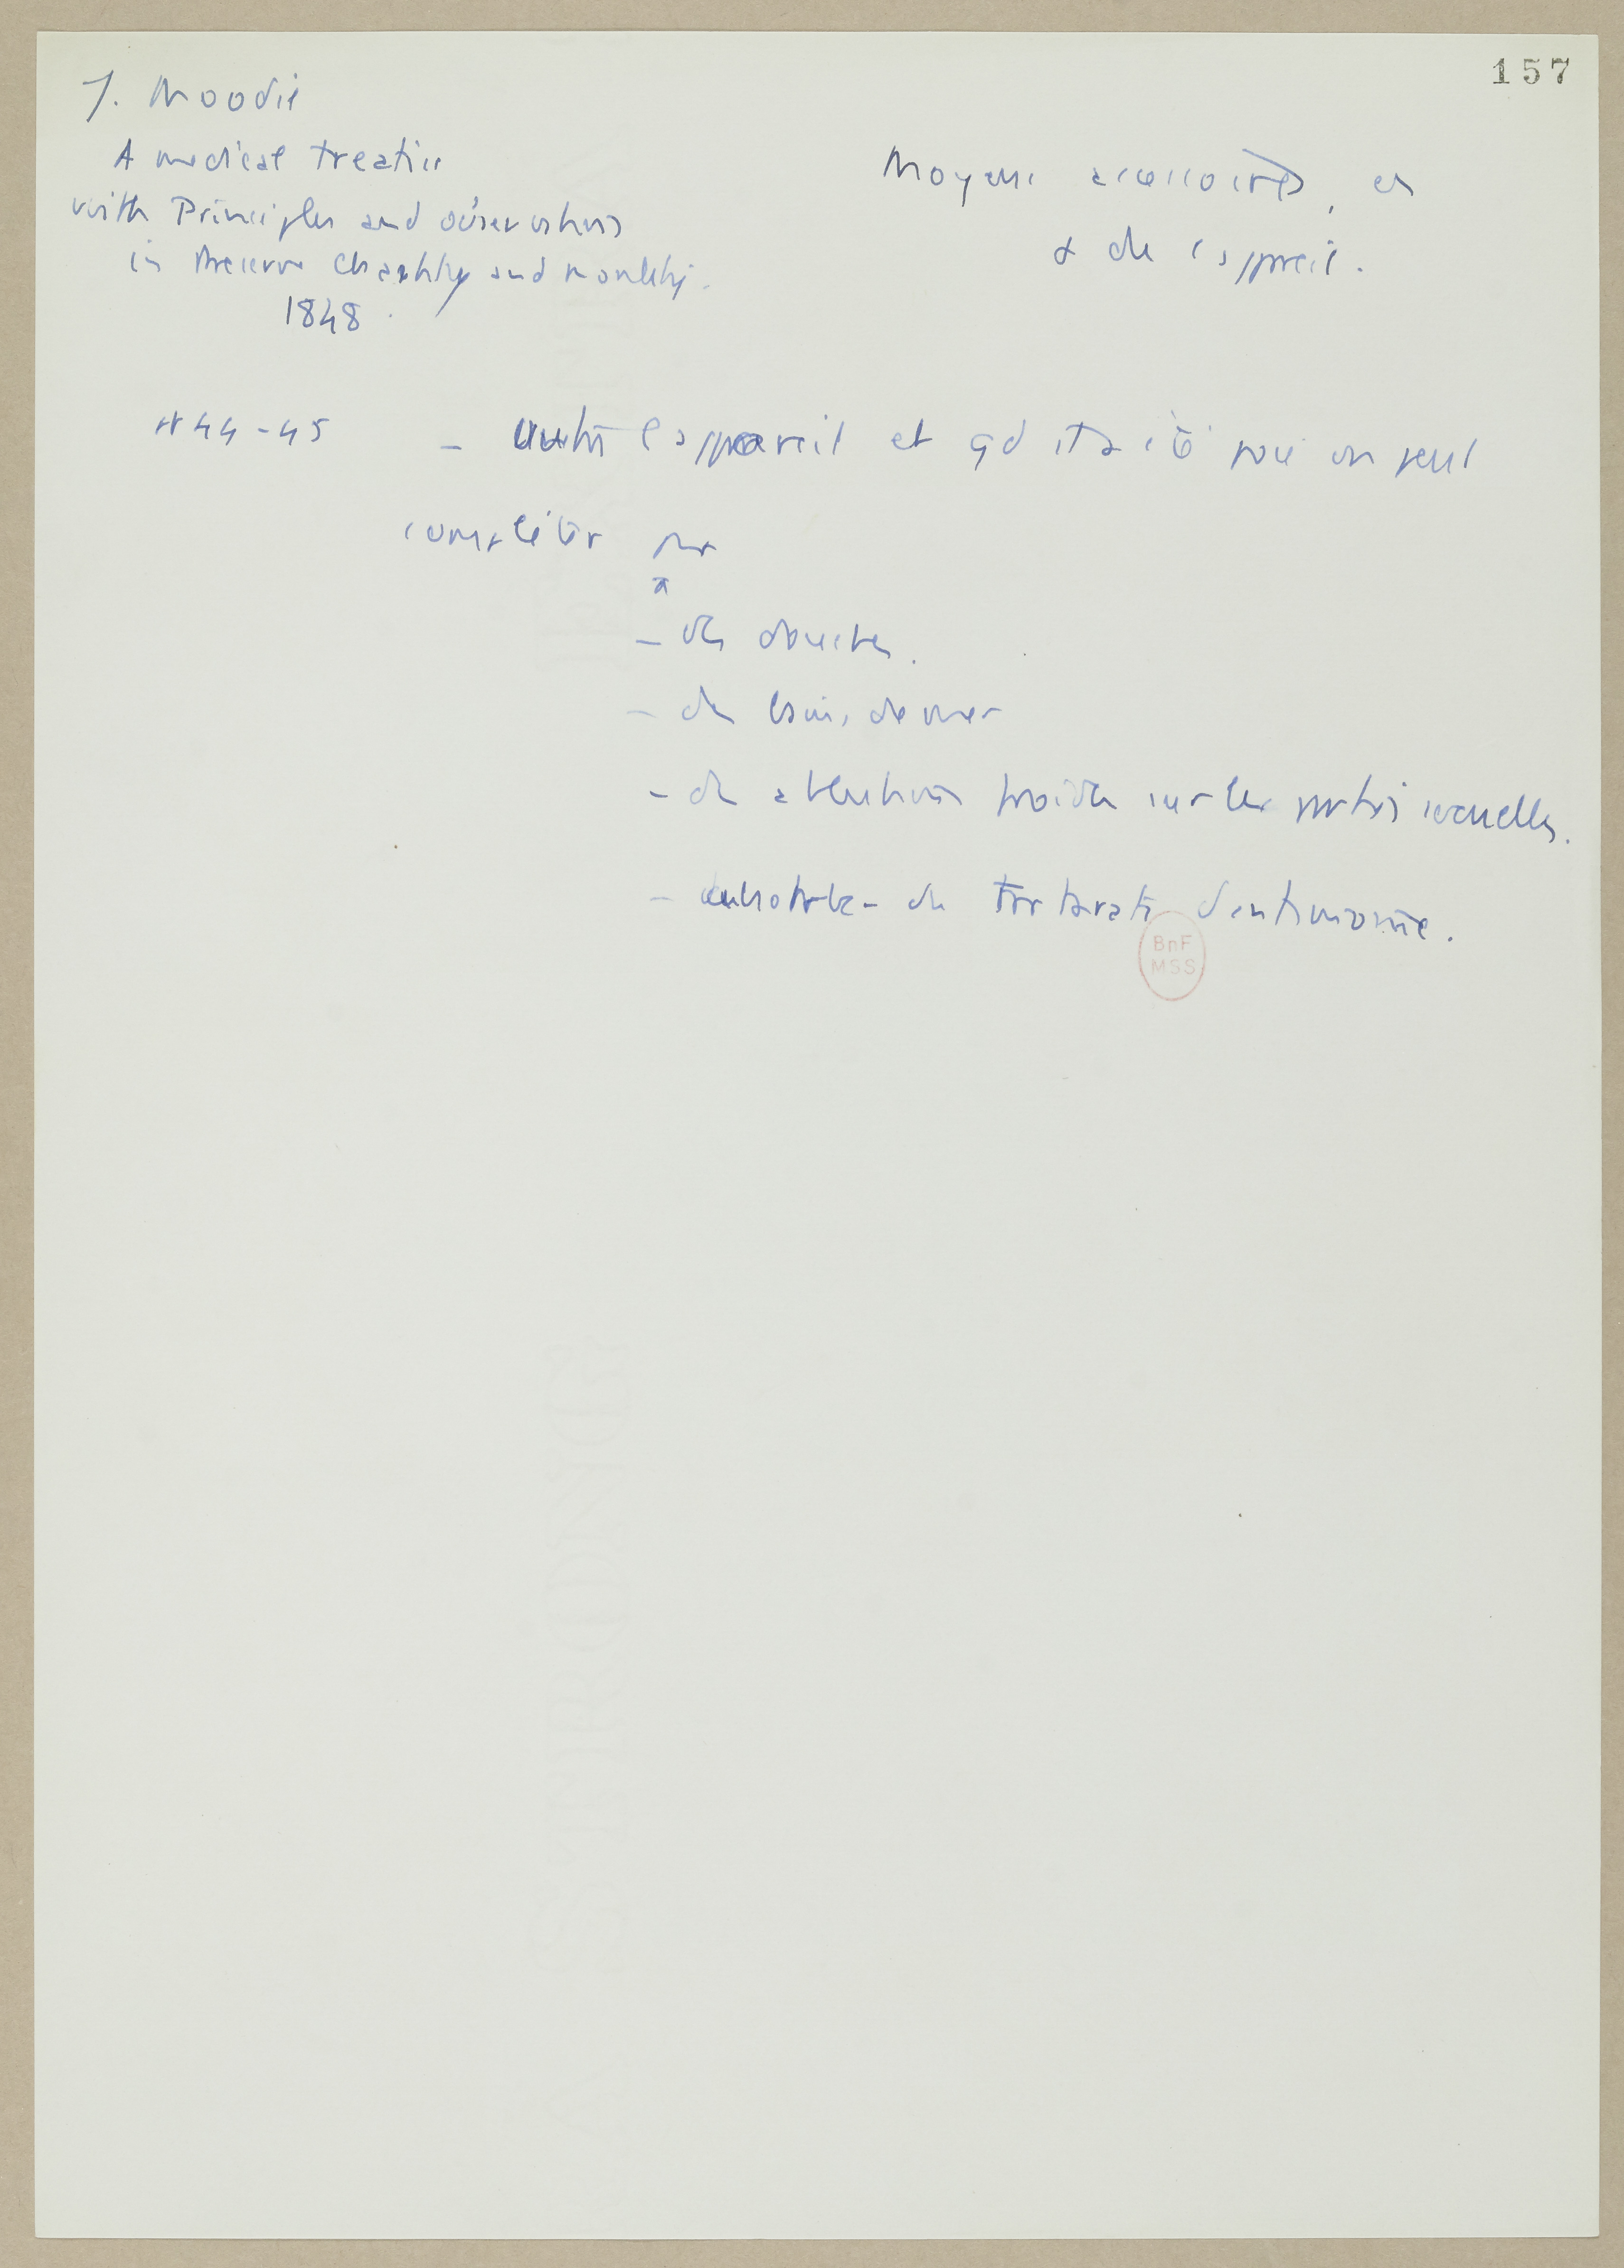 157
J. Moodie
A medical treatise
with Principles and observations
to preserve chastity and morality.
1848.
Moyens accessoires, en
+ de l'appareil.
44-45 - outre l'appareil et qd il a été posé on peut
compléter par
- des douches.
- des bains de mer
- des ablutions froides sur les parties sexuelles.
- du Tartarate d'antimoine.
BnF
MSS